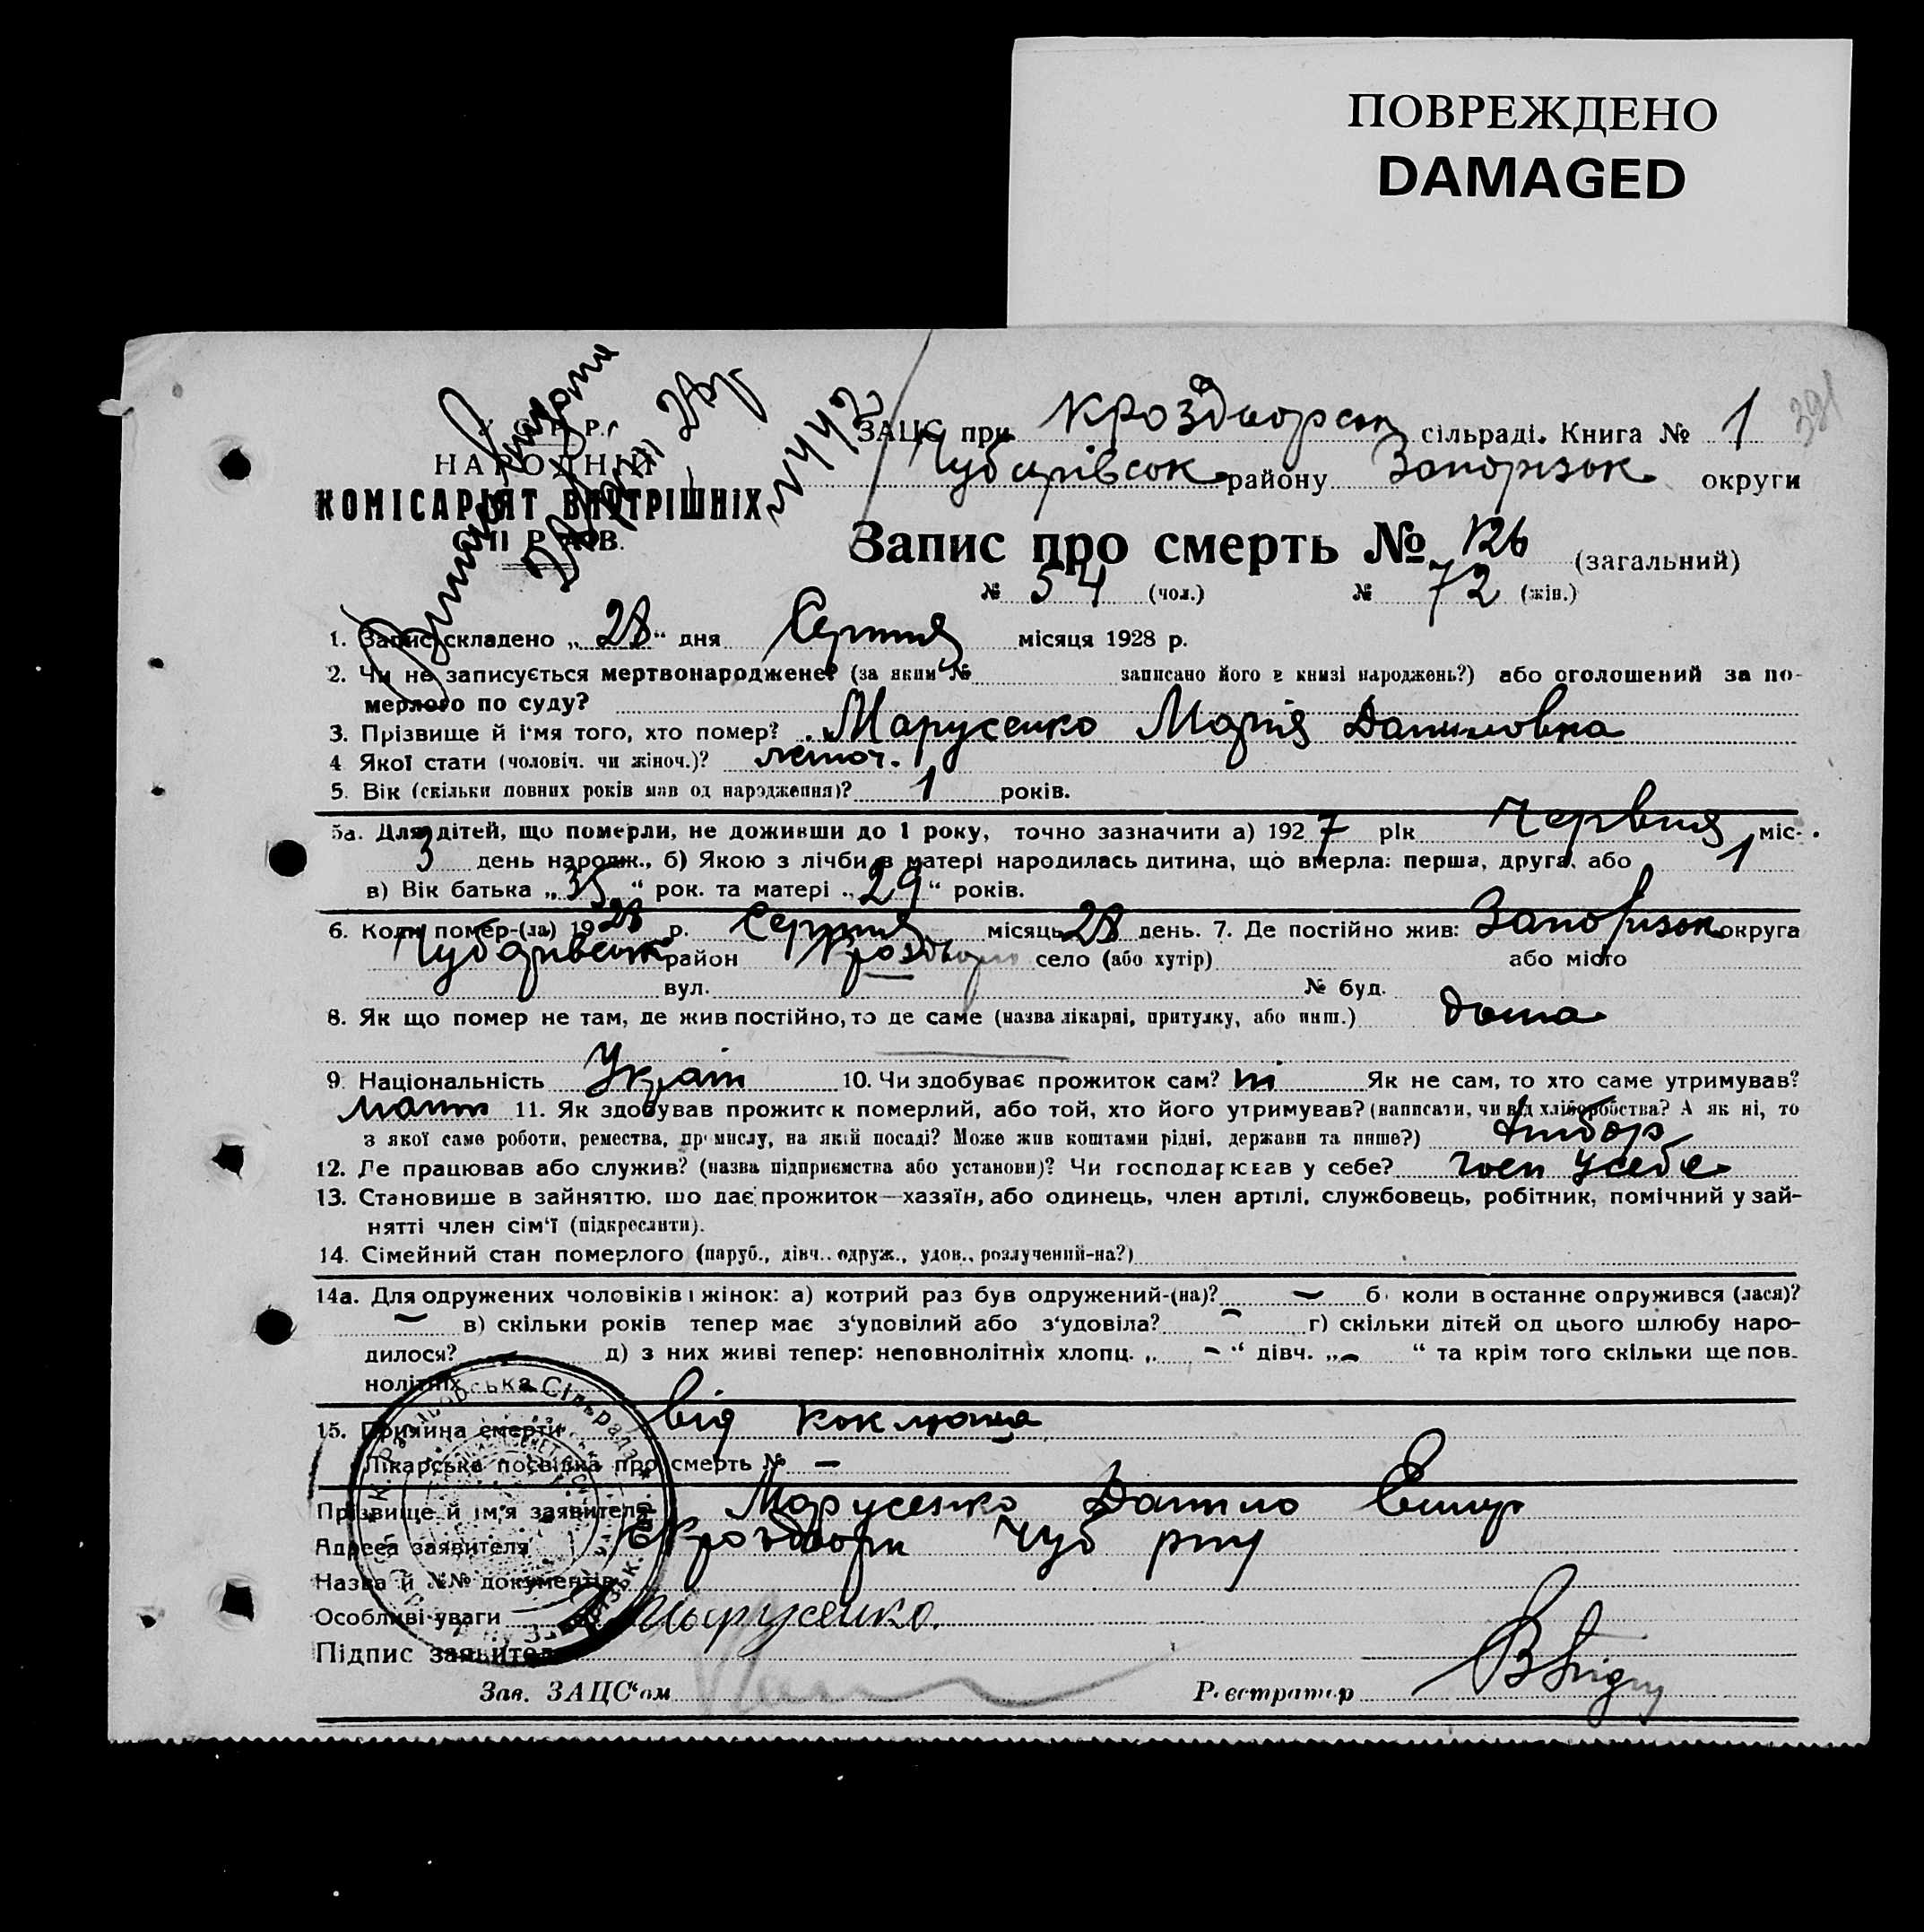 ПОВРЕЖДЕНО
DAMAGED
381
У.С.Р.Р.
НАРОДНІЙ
КОМІСАРІЯТ ВНУТРІШНІХ
СПРАВ.
№ 442
ЗАЦС при Кроздворск сільраді. Книга № 1
Чубарівськ району Запорізьк округи
Запис про смерть № 126 (загальний)
№ 54 (чол.) № 72 (жін.)
1. Запис складено „28“ дня Серпня місяця 1928 р.
2. Чи не записується мертвонароджене? (за яким № записано його в книзі народжень?) або оголошений за по-
мерлого по суду?
3. Прізвище й ім'я того, хто помер? Марусенко Марія Даниловна
4 Якої стати (чоловіч. чи жіноч.)? жіноч.
5. Вік (скільки повних років мав од народження)? 1 років.
5а. Для дітей, що померли, не доживши до 1 року, точно зазначити а) 1927 рік Червня міс.
3 день народж., б) Якою з лічби в матері народилась дитина, що вмерла: перша, друга, або 1
в) Вік батька „35“ рок. та матері „29“ років.
6. Коли помер-(ла) 1928 р. Серпня місяць 28 день. 7. Де постійно жив: Запорізьк округа
Чубарівськ район Кроздвори село (або хутір) або місто
вул. № буд.
8. Як що помер не там, де жив постійно, то де саме (назва лікарні, притулку, або инш.) дома
9. Національність Україн 10. Чи здобуває прожиток сам? ні Як не сам, то хто саме утримував?
11. Як здобував прожиток померлий, або той, хто його утримував? (написати, чи від хліборобства? А як ні, то
з якої саме роботи, ремества, промислу, на якій посаді? Може жив коштами рідні, держави та инше?) хлібор
12. Де працював або служив? (назва підприємства або установи)? Чи господарював у себе? госп усебе
13. Становише в зайняттю, що дає прожиток—хазяїн, або одинець, член артілі, службовець, робітник, помічний у зай-
нятті член сім'ї (підкреслити).
14. Сімейний стан померлого (паруб., дівч., одруж., удов., розлучений-на?)
14а. Для одружених чоловіків і жінок: а) котрий раз був одружений-(на)? — б) коли в останнє одружився (лася)?
— в) скільки років тепер має з'удовілий або з'удовіла? — г) скільки дітей од цього шлюбу наро-
дилося? д) з них живі тепер: неповнолітніх хлопц. „—“ дівч. „—“ та крім того скільки ще пов-
нолітніх
15. Причина смерти від коклюша
Лікарська посвідка про смерть № —
Прізвище й ім'я заявителя Марусенко Данило
Адреса заявителя Кроздвори Чуб рну
Назва й №№ документів
Особливі уваги
Підпис заявителя Марусенко.
Зав. ЗАЦС'ом Реєстратор